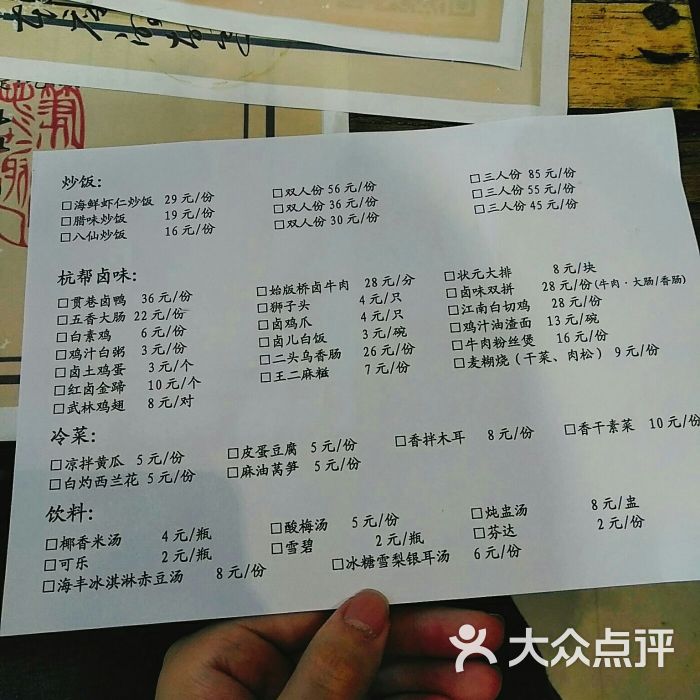 炒饭:
□海鲜虾仁炒饭 29 元/份 □双人份 56 元/份 □三人份 85 元/份
□腊味炒饭 19 元/份 □双人份 36 元/份 □三人份 55 元/份
□八仙炒饭 16 元/份 □双人份 30 元/份 □三人份 45 元/份
杭帮卤味:
□贯巷卤鸭 36 元/份 □始版桥卤牛肉 28 元/分 □状元大排 8 元/块
□五香大肠 22 元/份 □狮子头 4 元/只 □卤味双拼 28 元/份(牛肉·大肠/香肠)
□白素鸡 6 元/份 □卤鸡爪 4 元/只 □江南白切鸡 28 元/份
□鸡汁白粥 3 元/份 □卤儿白饭 3 元/碗 □鸡汁油渣面 13 元/碗
□卤土鸡蛋 3 元/个 □二头乌香肠 26 元/份 □牛肉粉丝煲 16 元/份
□红卤金蹄 10 元/个 □王二麻糍 7 元/份 □麦糊烧(干菜、肉松) 9 元/份
□武林鸡翅 8 元/对
冷菜:
□凉拌黄瓜 5 元/份 □皮蛋豆腐 5 元/份 □香拌木耳 8 元/份 □香干素菜 10 元/份
□白灼西兰花 5 元/份 □麻油莴笋 5 元/份
饮料:
□椰香米汤 4 元/瓶 □酸梅汤 5 元/份 □炖盅汤 8 元/盅
□可乐 2 元/瓶 □雪碧 2 元/瓶 □芬达 2 元/份
□海丰冰淇淋赤豆汤 8 元/份 □冰糖雪梨银耳汤 6 元/份
大众点评